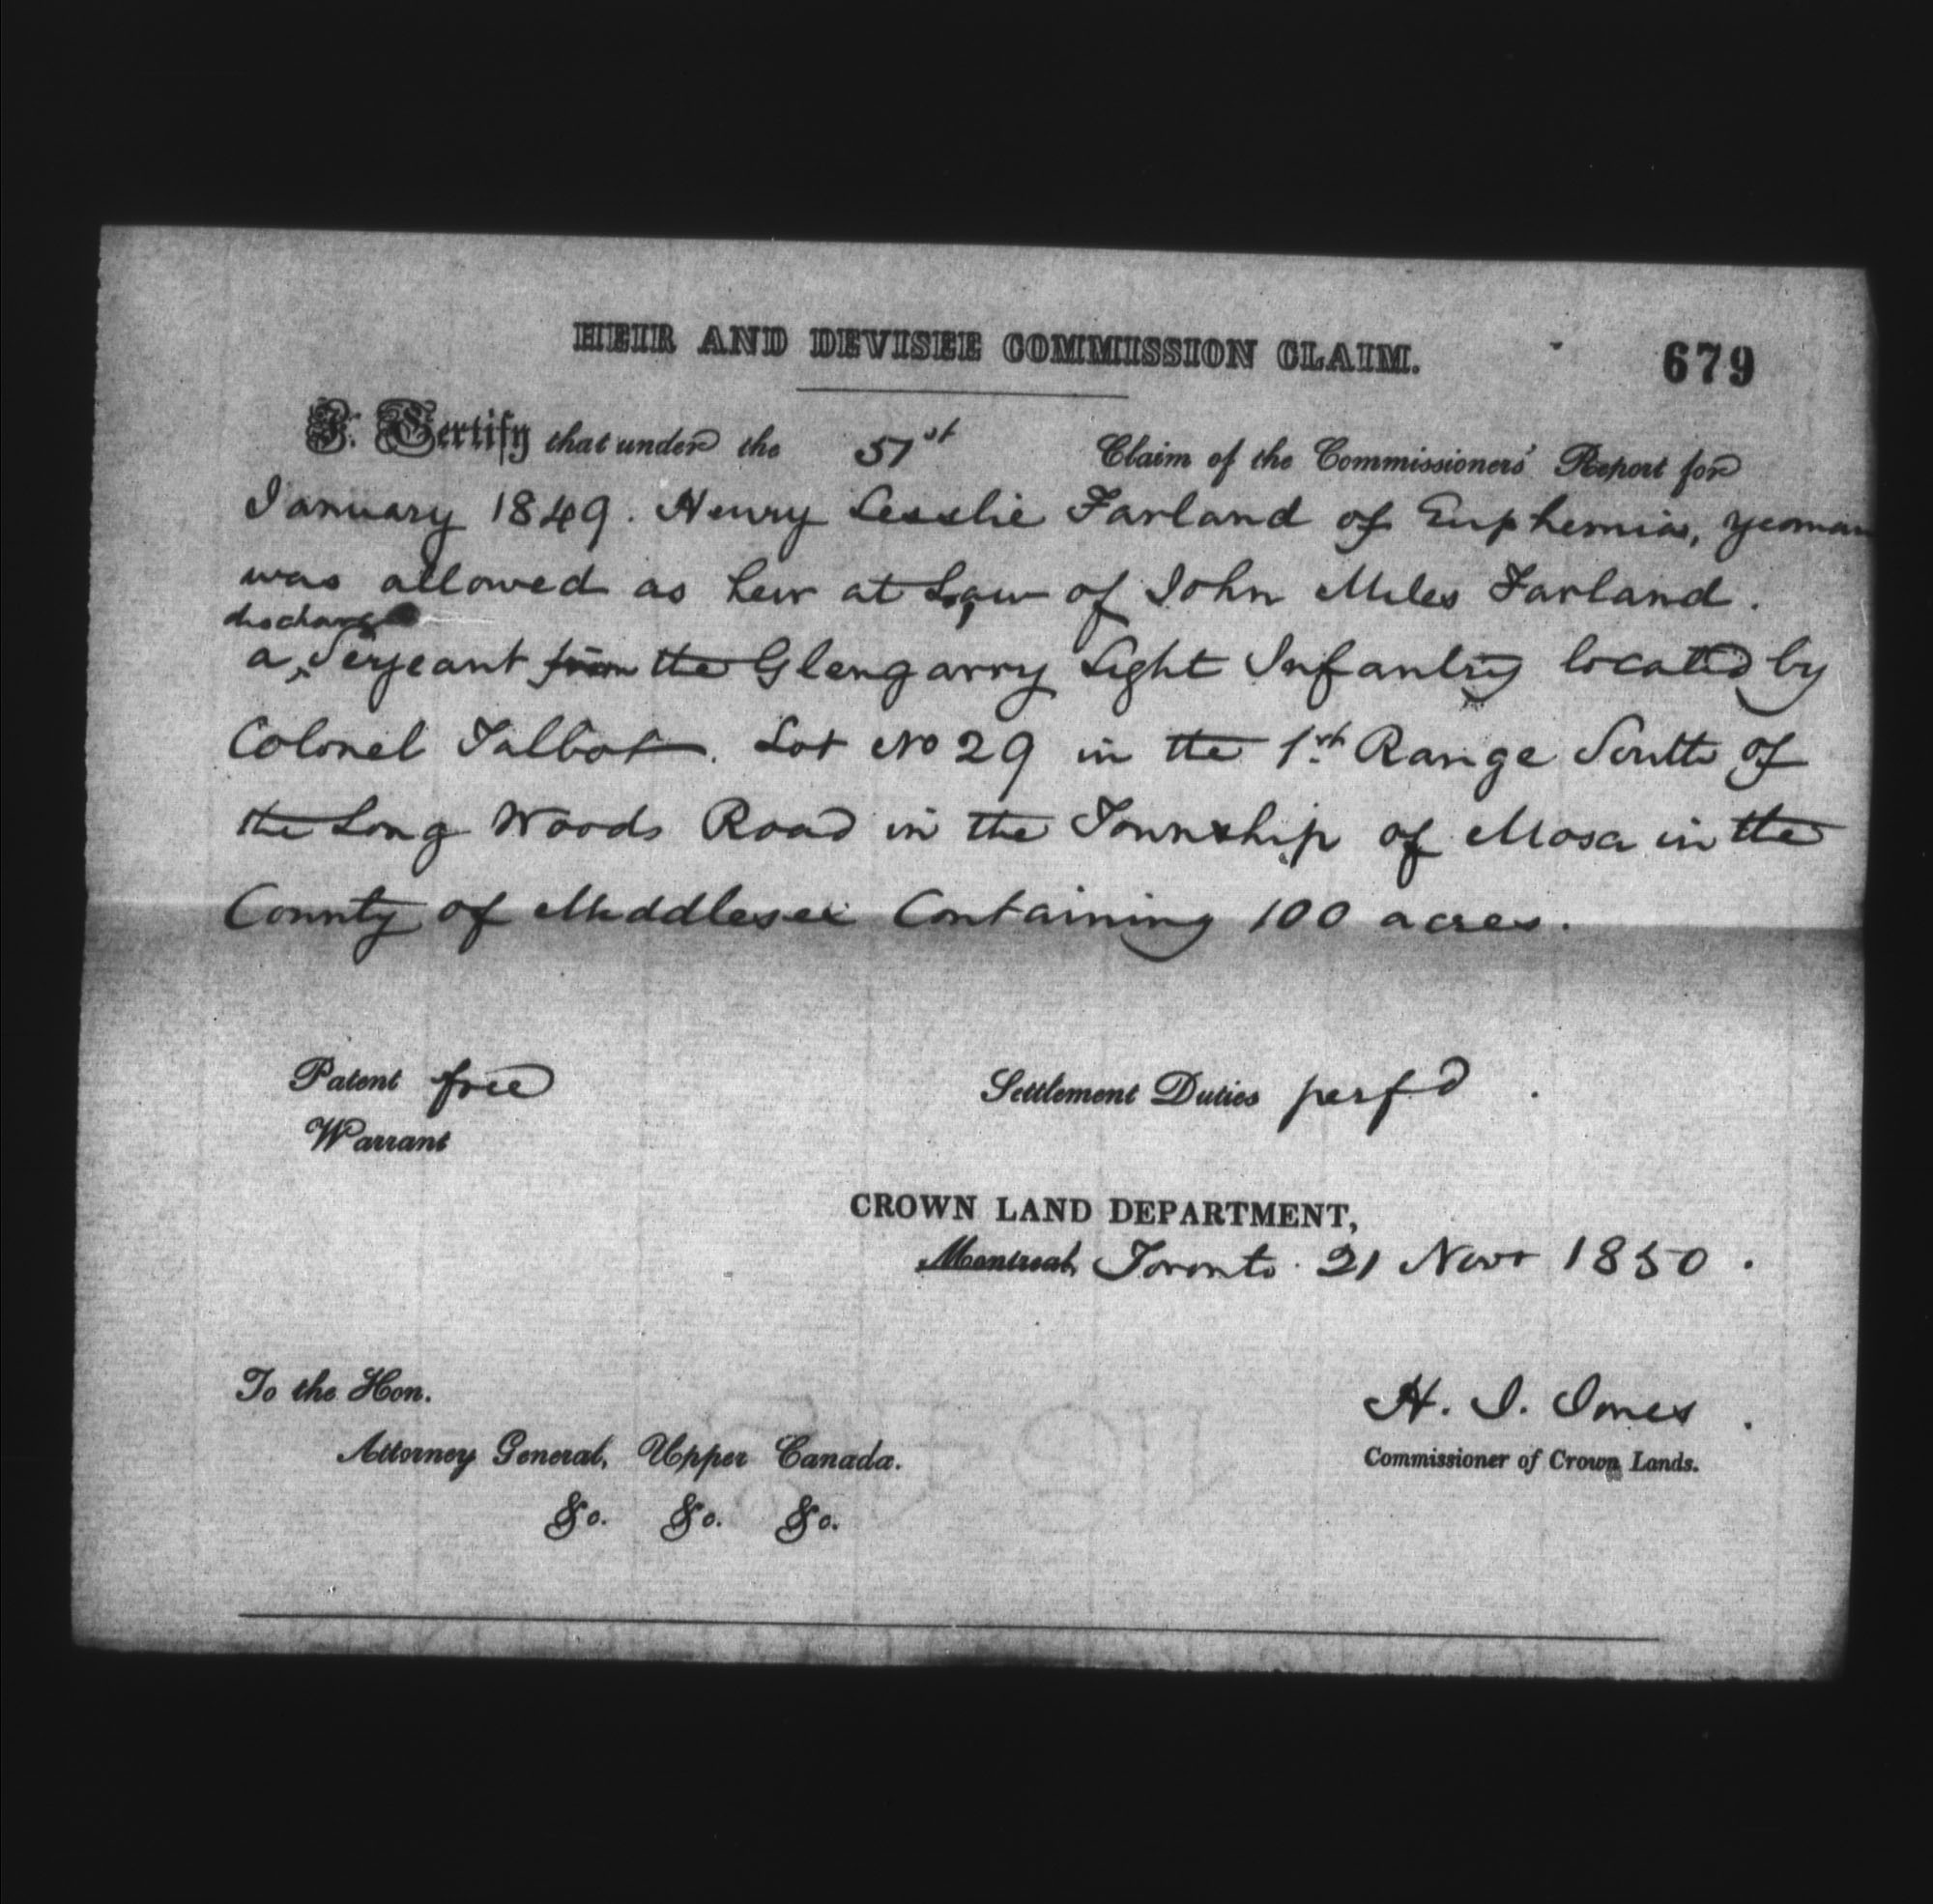 HEIR AND DEVISEE COMMISSION CLAIM. 679
I Certify that under the 51st Claim of the Commissioners' Report for
January 1849. Henry Lesslie Farland of Euphemia, yeoman
was allowed as heir at Law of John Miles Farland.
discharged
a Serjeant from the Glengarry Light Infantry located by
Colonel Talbot. Lot No 29 in the 1st Range South of
the Long Woods Road in the Township of Mosa in the
County of Middlesex Containing 100 acres.
Patent free Settlement Duties perf'd.
Warrant
CROWN LAND DEPARTMENT,
Montreal, Toronto. 21 Novr 1850.
To the Hon. H. J. Jones.
Attorney General, Upper Canada. Commissioner of Crown Lands.
&c. &c. &c.